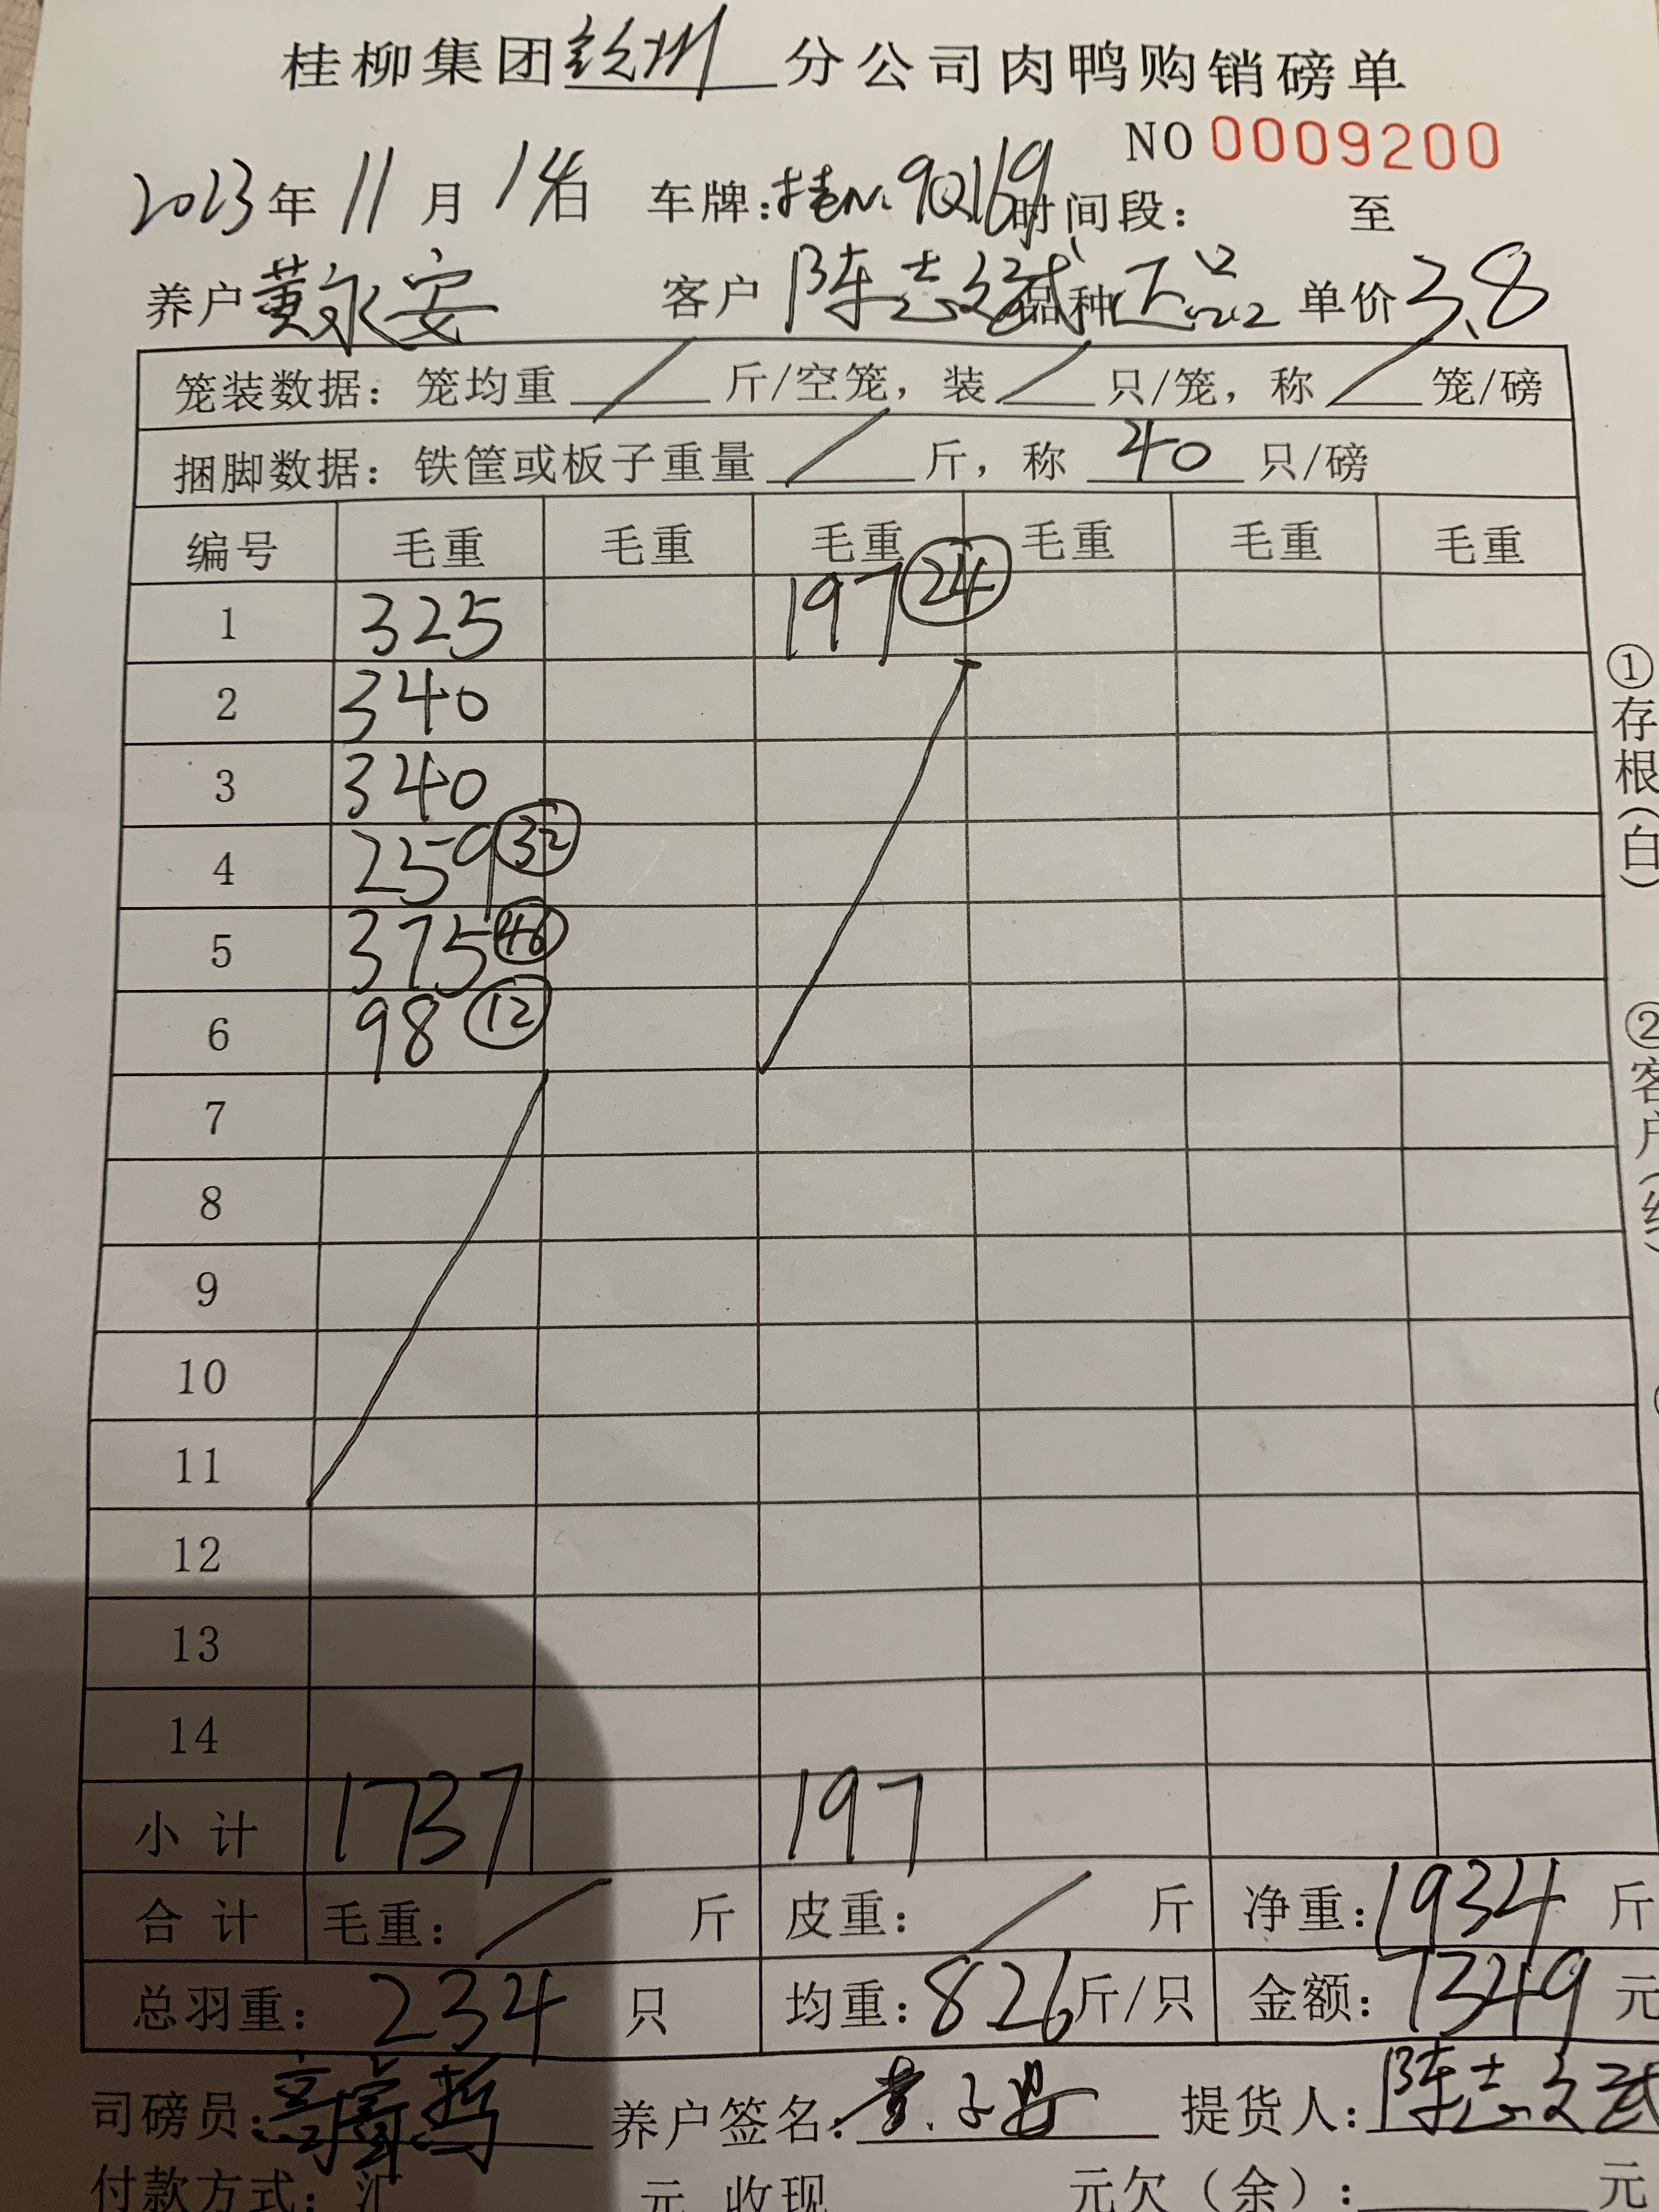 桂柳集团钦州分公司肉鸭购销磅单
NO 0009200
2023年 11月 14日 车牌:桂N·9Q169 时间段: 至
养户 黄永安 客户 陈志斌 品种 正品 单价 3.8
笼装数据: 笼均重 / 斤/空笼, 装 / 只/笼, 称 / 笼/磅
捆脚数据: 铁筐或板子重量 / 斤, 称 40 只/磅
编号 毛重 毛重 毛重 毛重 毛重 毛重
1 325 197 24
2 340
3 340
4 259 32
5 375 46
6 98 12
7
8
9
10
11
12
13
14
小计 1737 197
合计 毛重: / 斤 皮重: / 斤 净重: 1934 斤
总羽重: 234 只 均重: 826 斤/只 金额: 7349 元
司磅员: 养户签名: 提货人: 陈志斌
付款方式: 汇 元 收现 元欠(余): 元
①存根(白)
②客户(红)